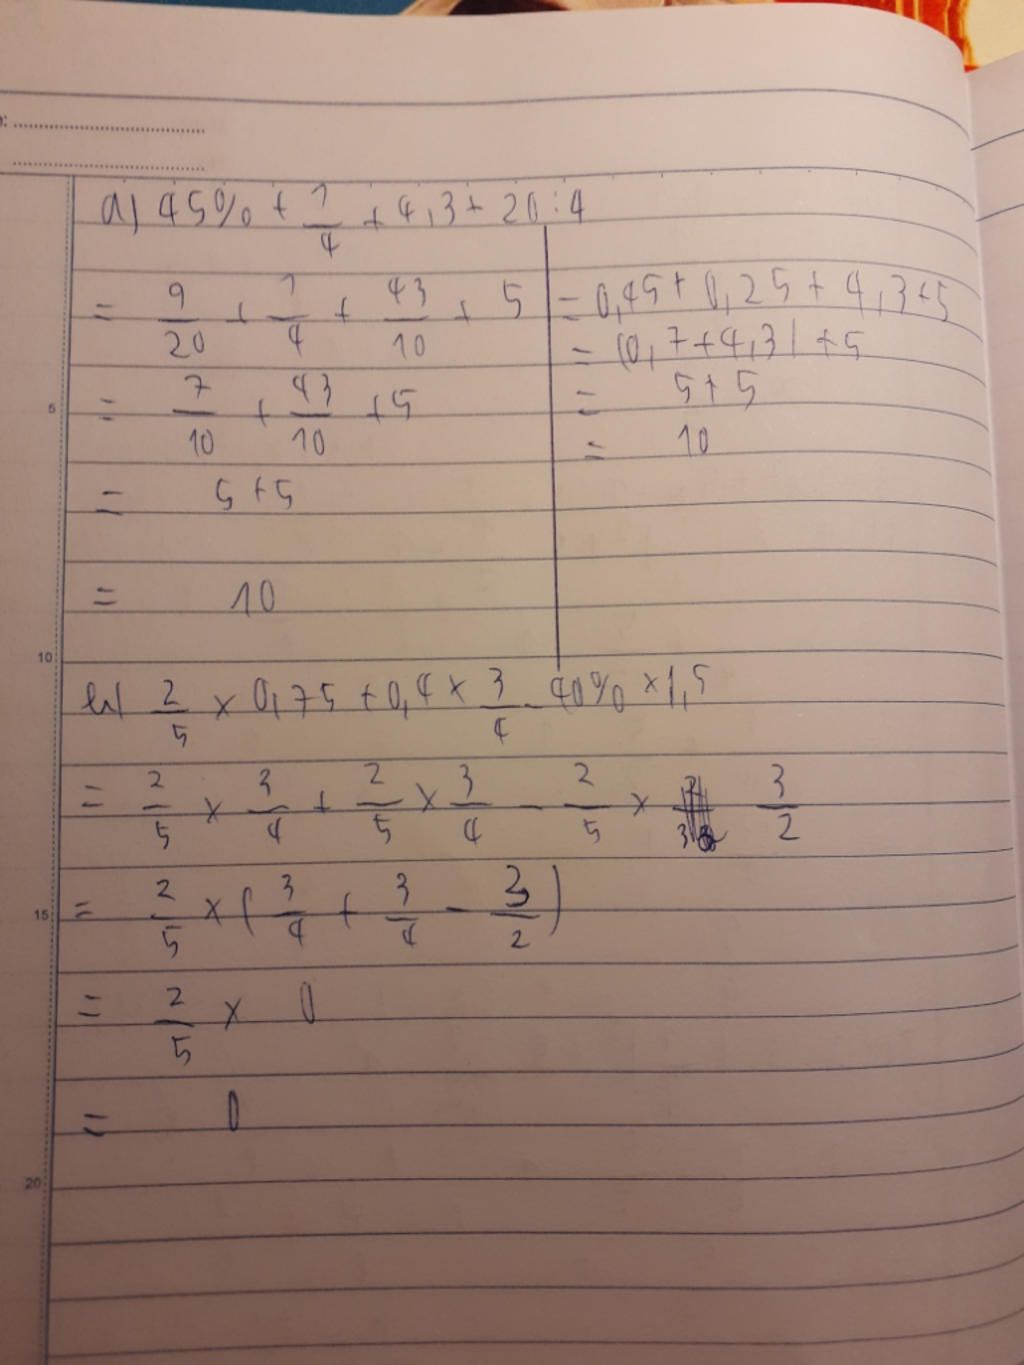 a) 45% + 1/4 + 4,3 + 20 : 4
= 9/20 + 1/4 + 43/10 + 5
= 7/10 + 43/10 + 5
= 5 + 5
= 10
= 0,45 + 0,25 + 4,3 + 5
= (0,7 + 4,3) + 5
= 5 + 5
= 10
b) 2/5 × 0,75 + 0,4 × 3/4 - 40% × 1,5
= 2/5 × 3/4 + 2/5 × 3/4 - 2/5 × 3/2
= 2/5 × (3/4 + 3/4 - 3/2)
= 2/5 × 0
= 0
5
10
15
20